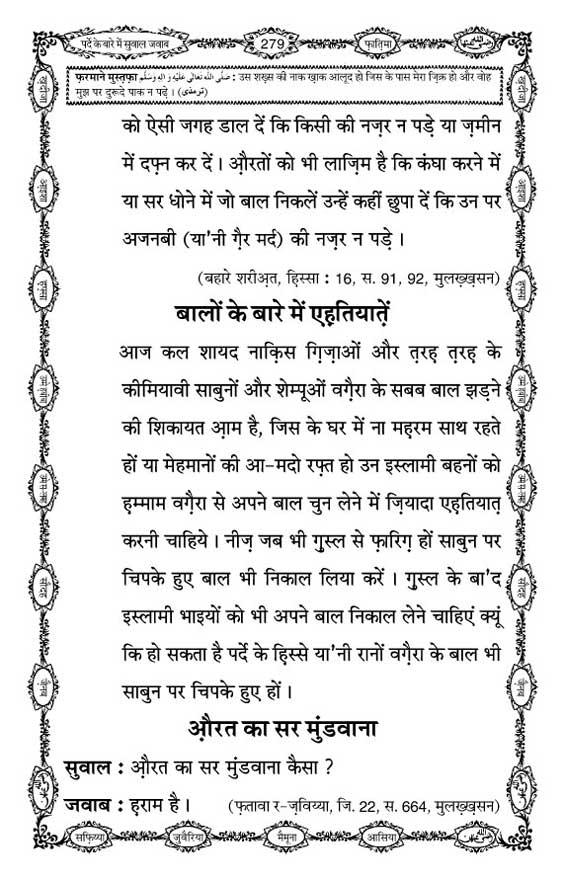 पर्दे के बारे में सुवाल जवाब
279
फ़ातिमा
फ़रमाने मुस्त़फ़ा صَلَّى اللهُ تَعَالٰى عَلَيْهِ وَاٰلِهٖ وَسَلَّم : उस शख़्स की नाक ख़ाक आलूद हो जिस के पास मेरा ज़िक्र हो और वोह
मुझ पर दुरूदे पाक न पढ़े । (ترمذی)
को ऐसी जगह डाल दें कि किसी की नज़र न पड़े या ज़मीन
में दफ़्न कर दें । औ़रतों को भी लाज़िम है कि कंघा करने में
या सर धोने में जो बाल निकलें उन्हें कहीं छुपा दें कि उन पर
अजनबी (या'नी ग़ैर मर्द) की नज़र न पड़े ।
(बहारे शरीअ़त, हिस्सा : 16, स. 91, 92, मुलख़्ख़सन)
बालों के बारे में एह़तियात़ें
आज कल शायद नाक़िस ग़िज़ाओं और त़रह़ त़रह़ के
कीमियावी साबुनों और शेम्पूओं वग़ैरा के सबब बाल झड़ने
की शिकायत आ़म है, जिस के घर में ना मह़रम साथ रहते
हों या मेहमानों की आ-मदो रफ़्त हो उन इस्लामी बहनों को
ह़म्माम वग़ैरा से अपने बाल चुन लेने में ज़ियादा एह़तियात़
करनी चाहिये । नीज़ जब भी ग़ुस्ल से फ़ारिग़ हों साबुन पर
चिपके हुए बाल भी निकाल लिया करें । ग़ुस्ल के बा'द
इस्लामी भाइयों को भी अपने बाल निकाल लेने चाहिएं क्यूं
कि हो सकता है पर्दे के हिस्से या'नी रानों वग़ैरा के बाल भी
साबुन पर चिपके हुए हों ।
औ़रत का सर मुंडवाना
सुवाल : औ़रत का सर मुंडवाना कैसा ?
जवाब : ह़राम है । (फ़तावा र-ज़विय्या, जि. 22, स. 664, मुलख़्ख़सन)
सफ़िय्या
जुवैरिया
मैमूना
आसिया